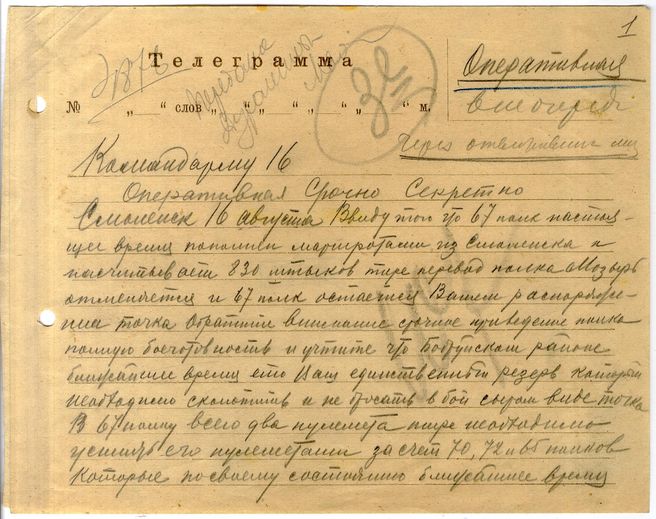 1
Телеграмма
Оперативная
Вне очереди
№ „ “ слов „ “ „ “ „ “ м.
через ответственных лиц
Командарму 16
Оперативная Срочно Секретно
Смоленск 16 августа Ввиду того что 67 полк настоя-
щее время пополнен маршротами из Смоленска и
насчитывает 830 штыков тире перевод полка Мозырь
отменяется и 67 полк остается Вашем распоряже-
нии точка Обратите внимание срочное приведение полка
полную боеготовность и учтите что Бобруйском районе
ближайшее время это Ваш единственный резерв который
необходимо сколотить и не бросать в бой сыром виде точка
В 67 полку всего два пулемета тире необходимо
усилить его пулеметами за счет 70, 72 полков
которые по своему состоянию ближайшее время